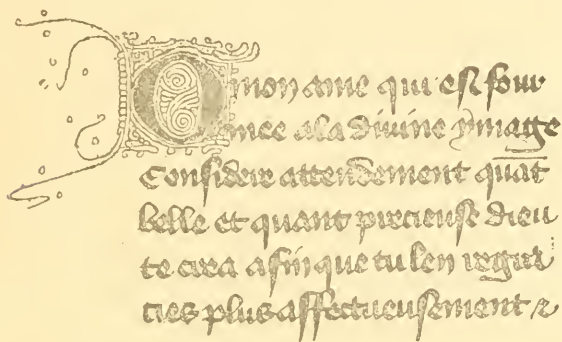 O mon ame qui est four
mee ala diuine ymage
Considere attendement quāt
belle et quant precieuse dieu
te crea afin que tu len regra
cies plus affectueusement &